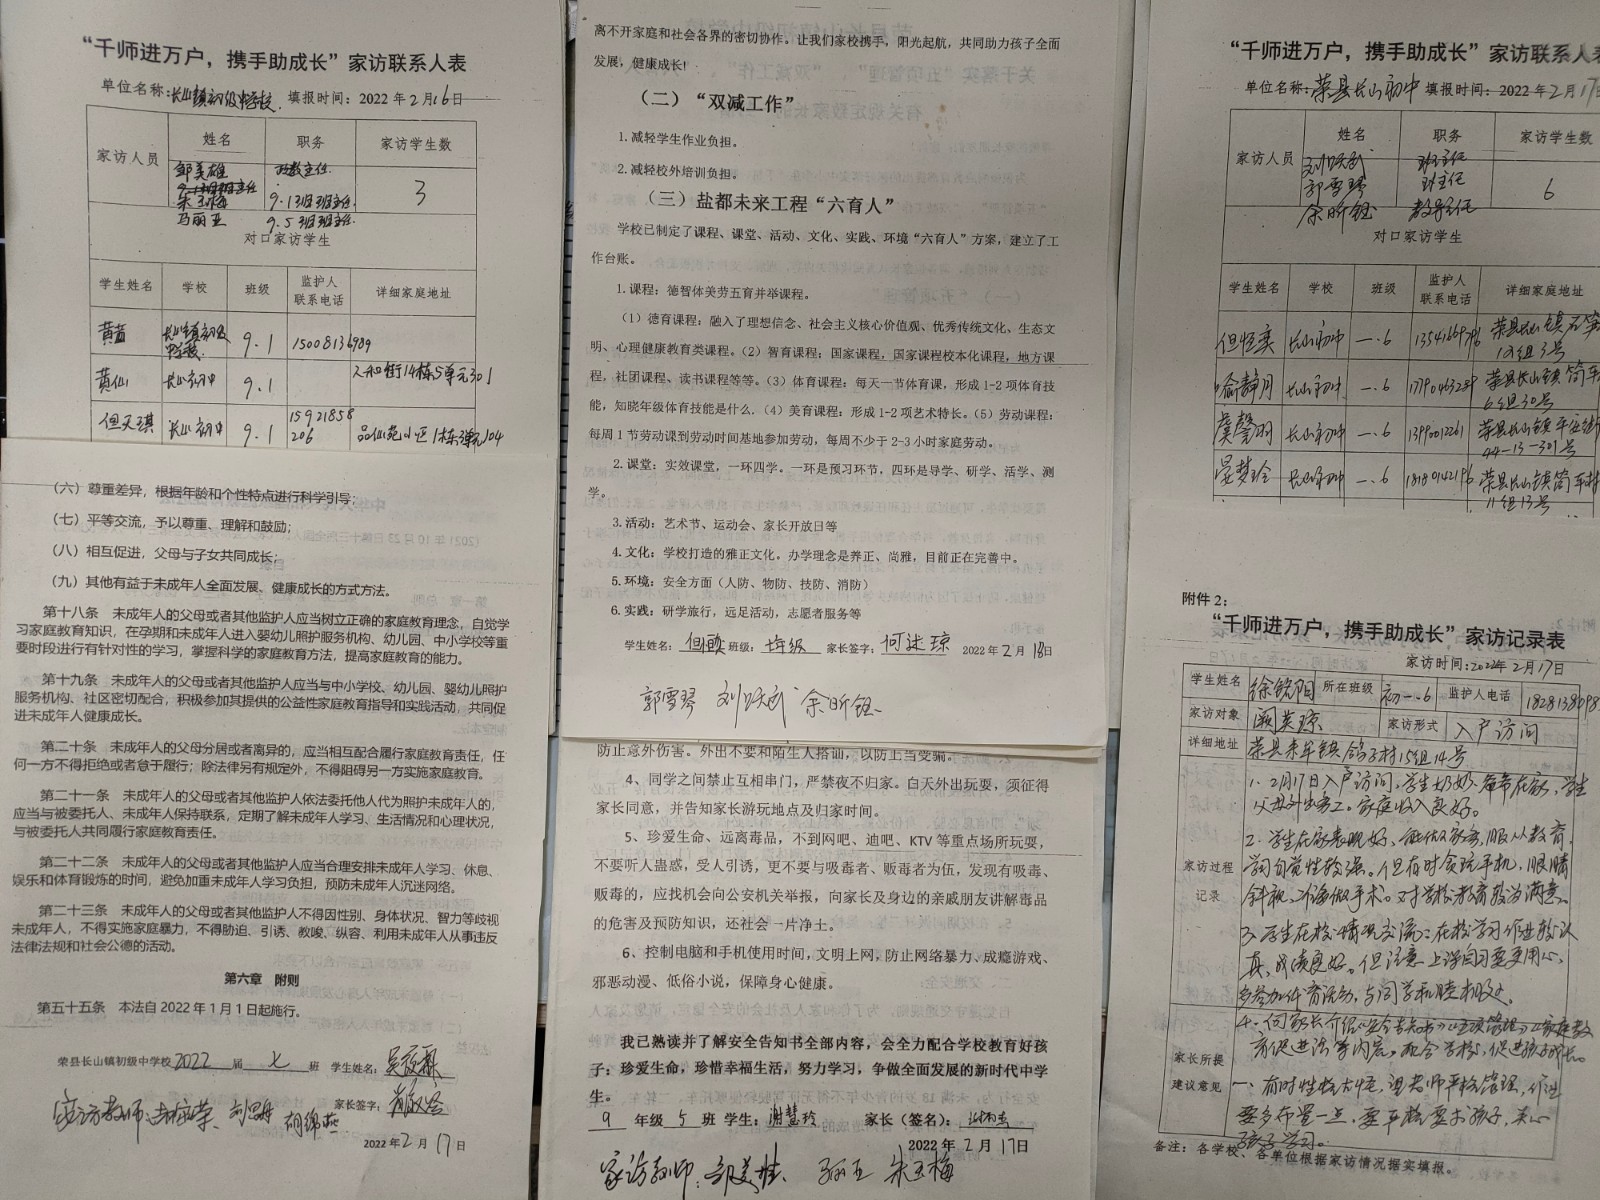 “千师进万户，携手助成长”家访联系人表
单位名称：长山镇初级中学校 填报时间：2022 年 2 月 16 日
家访人员 姓名 职务 家访学生数
邹美雄 政教主任
朱玉梅 9.1班班主任 3
马丽亚 9.5班班主任
对口家访学生
学生姓名 学校 班级 监护人联系电话 详细家庭地址
黄蓝 长山镇初级中学校 9.1 15008136989
黄仙 长山初中 9.1 街14栋5单元301
但天琪 长山初中 9.1 15921858206 品仙苑小区1栋3单元104
（六）尊重差异，根据年龄和个性特点进行科学引导；
（七）平等交流，予以尊重、理解和鼓励；
（八）相互促进，父母与子女共同成长；
（九）其他有益于未成年人全面发展、健康成长的方式方法。
第十八条 未成年人的父母或者其他监护人应当树立正确的家庭教育理念，自觉学
习家庭教育知识，在孕期和未成年人进入婴幼儿照护服务机构、幼儿园、中小学校等重
要时段进行有针对性的学习，掌握科学的家庭教育方法，提高家庭教育的能力。
第十九条 未成年人的父母或者其他监护人应当与中小学校、幼儿园、婴幼儿照护
服务机构、社区密切配合，积极参加其提供的公益性家庭教育指导和实践活动，共同促
进未成年人健康成长。
第二十条 未成年人的父母分居或者离异的，应当相互配合履行家庭教育责任，任
何一方不得拒绝或者怠于履行；除法律另有规定外，不得阻碍另一方实施家庭教育。
第二十一条 未成年人的父母或者其他监护人依法委托他人代为照护未成年人的，
应当与被委托人、未成年人保持联系，定期了解未成年人学习、生活情况和心理状况，
与被委托人共同履行家庭教育责任。
第二十二条 未成年人的父母或者其他监护人应当合理安排未成年人学习、休息、
娱乐和体育锻炼的时间，避免加重未成年人学习负担，预防未成年人沉迷网络。
第二十三条 未成年人的父母或者其他监护人不得因性别、身体状况、智力等歧视
未成年人，不得实施家庭暴力，不得胁迫、引诱、教唆、纵容、利用未成年人从事违反
法律法规和社会公德的活动。
第六章 附则
第五十五条 本法自 2022 年 1 月 1 日起施行。
荣县长山镇初级中学校 2022 届 七 班 学生姓名：
家长签字：
家访教师： 胡绵燕
2022 年 2 月 17 日
离不开家庭和社会各界的密切协作。让我们家校携手，阳光起航，共同助力孩子全面
发展，健康成长！
（二）“双减工作”
1.减轻学生作业负担。
2.减轻校外培训负担。
（三）盐都未来工程“六育人”
学校已制定了课程、课堂、活动、文化、实践、环境“六育人”方案，建立了工
作台账。
1.课程：德智体美劳五育并举课程。
（1）德育课程：融入了理想信念、社会主义核心价值观、优秀传统文化、生态文
明、心理健康教育类课程。（2）智育课程：国家课程，国家课程校本化课程，地方课
程，社团课程、读书课程等等。（3）体育课程：每天一节体育课，形成 1-2 项体育技
能，知晓年级体育技能是什么。（4）美育课程：形成 1-2 项艺术特长。（5）劳动课程：
每周 1 节劳动课到劳动时间基地参加劳动，每周不少于 2-3 小时家庭劳动。
2.课堂：实效课堂，一环四学。一环是预习环节，四环是导学、研学、活学、测
学。
3.活动：艺术节、运动会、家长开放日等
4.文化：学校打造的雅正文化。办学理念是养正、尚雅，目前正在完善中。
5.环境：安全方面（人防、物防、技防、消防）
6.实践：研学旅行，远足活动，志愿者服务等
学生姓名： 班级： 年级 家长签字：何建琼 2022 年 2 月 18 日
郭雪琴 刘跃武 余昕钰
防止意外伤害。外出不要和陌生人搭讪，以防上当受骗。
4、同学之间禁止互相串门，严禁夜不归家。白天外出玩耍，须征得
家长同意，并告知家长游玩地点及归家时间。
5、珍爱生命、远离毒品，不到网吧、迪吧、KTV 等重点场所玩耍，
不要听人蛊惑，受人引诱，更不要与吸毒者、贩毒者为伍，发现有吸毒、
贩毒的，应找机会向公安机关举报，向家长及身边的亲戚朋友讲解毒品
的危害及预防知识，还社会一片净土。
6、控制电脑和手机使用时间，文明上网，防止网络暴力、成瘾游戏、
邪恶动漫、低俗小说，保障身心健康。
我已熟读并了解安全告知书全部内容，会全力配合学校教育好孩
子：珍爱生命，珍惜幸福生活，努力学习，争做全面发展的新时代中学
生。
9 年级 5 班 学生：谢慧玲 家长（签名）：
2022 年 2 月 17 日
家访教师：邹美雄 朱玉梅
“千师进万户，携手助成长”家访联系人表
单位名称：荣县长山初中 填报时间：2022 年 2 月 17 日
家访人员 姓名 职务 家访学生数
刘跃武 班主任
郭雪琴 班主任 6
余昕钰 教导主任
对口家访学生
学生姓名 学校 班级 监护人联系电话 详细家庭地址
但恒奕 长山初中 一.6 荣县长山镇 组3号
喻静月 长山初中 一.6 荣县长山镇筒车 6组30号
龚馨明 长山初中 一.6 13990012261 荣县长山镇平 街 44-13-301号
晏梦玲 长山初中 一.6 荣县长山镇筒车村 11组13号
附件 2：
“千师进万户，携手助成长”家访记录表
家访时间：2022 年 2 月 17 日
学生姓名 徐锐阳 所在班级 初一.6 监护人电话
家访对象 阚英琼 家访形式 入户访问
详细地址 荣县来牟镇鸽子村15组14号
家访过程记录
1、2月17日入户访问，学生奶奶、 在家，学生
父母外出务工。家庭收入良好。
2、学生在家表现好，能做家务，服从教育，
学习自觉性较强。但有时贪玩手机，眼睛
斜视，上海做手术。对学校教育较为满意。
3、学生在校情况交流：在校学习作业较认
真，成绩良好。但注意上课自习要更用心，
多参加体育活动，与同学和睦相处。
4、向家长介绍《安全告知书》《五项管理》《家庭教
育促进法》等内容，配合学校，促进孩子成长。
家长所提建议意见
一、有时性格太怪，望老师严格管理，作业
要多布置一点，要严格要求孩子，关心
孩子学习。
备注：各学校、各单位根据家访情况据实填报。